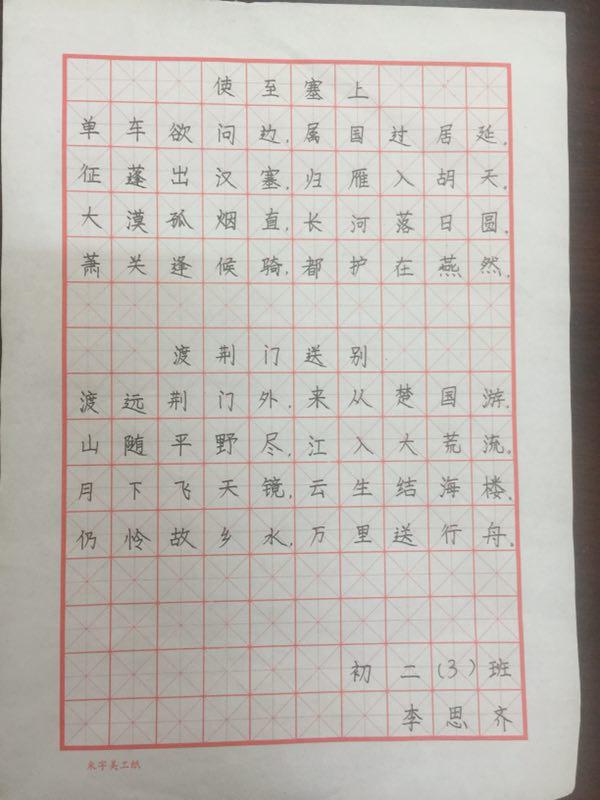 使至塞上
单车欲问边,属国过居延。
征蓬出汉塞,归雁入胡天。
大漠孤烟直,长河落日圆。
萧关逢候骑,都护在燕然。
渡荆门送别
渡远荆门外,来从楚国游。
山随平野尽,江入大荒流。
月下飞天镜,云生结海楼。
仍怜故乡水,万里送行舟。
初二(3)班
李思齐
米字美工纸